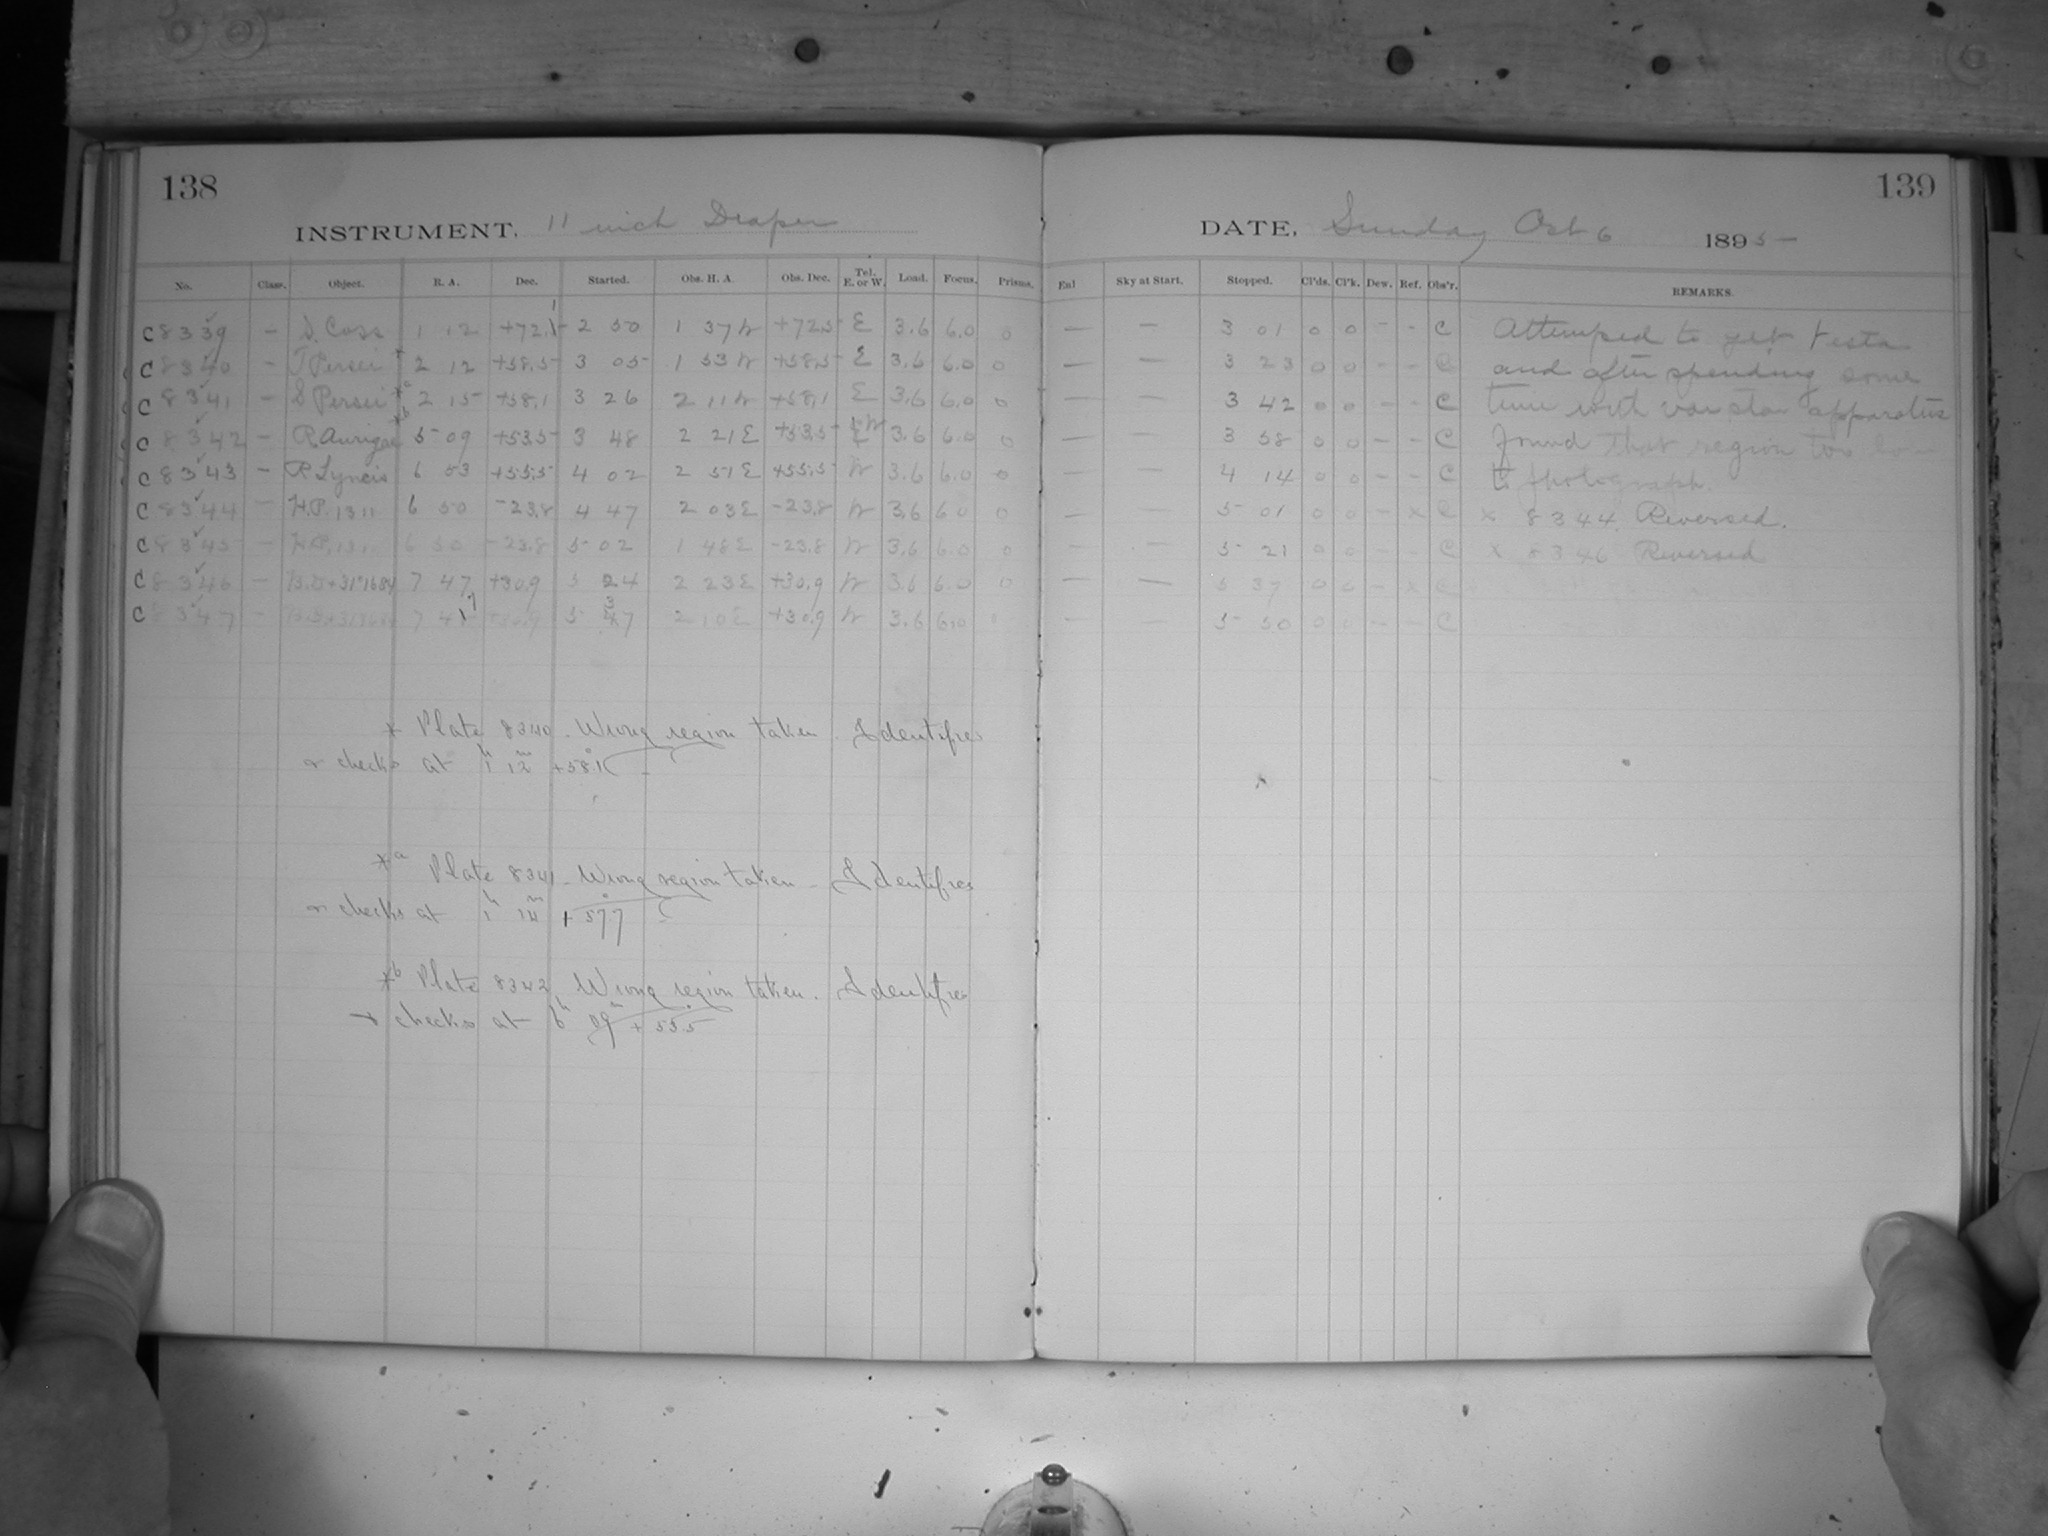 138
INSTRUMENT. 11 inch Draper
No. Class. Object. R. A. Dec. Started. Obs. H. A. Obs. Dec. Tel. E. or W. Load. Focus. Prisms.
C 8339 - S. Cass 1 12 +72.1 2 50 1 37 W +72.5 E 3.6 6.0 0
C 8340 - T Persei * 2 12 +58.5 3 05 1 53 W +58.5 E 3.6 6.0 0
C 8341 - S Persei *a 2 15 +58.1 3 26 2 11 W +58.1 E 3.6 6.0 0
C 8342 - R Aurigae *b 5 09 +53.5 3 48 2 21 E +53.5 W 3.6 6.0 0
C 8343 - R Lyncis 6 53 +55.5 4 02 2 51 E +55.5 W 3.6 6.0 0
C 8344 - H.P. 1311 6 50 -23.8 4 47 2 03 E -23.8 W 3.6 6.0 0
C 8345 - H.P. 1311 6 50 -23.8 5 02 1 48 E -23.8 W 3.6 6.0 0
C 8346 - B.D+31°1684 7 47 +30.9 5 24 2 23 E +30.9 W 3.6 6.0 0
C 8347 - 7 47 +30.9 5 37 2 10 E +30.9 W 3.6 6.0 0
* Plate 8340. Wrong region taken. Identifies
or checks at 1h 12m +58.1
*a Plate 8341. Wrong region taken. Identifies
or checks at 1h 14m +57.7
*b Plate 8342 Wrong region taken. Identifies
or checks at 6h 09m +53.5
139
DATE. Sunday Oct 6 1895
Enl Sky at Start. Stopped. Cl'ds. Cl'k. Dew. Ref. Obs'r. REMARKS.
— — 3 01 0 0 - - C Attemped to get Vesta
— — 3 23 0 0 - - C and after spending some
— — 3 42 0 0 - - C time with var star apparatus
— — 3 58 0 0 - - C found that region too low
— — 4 14 0 0 - - C to photograph.
— — 5 01 0 0 - x C x 8344 Reversed.
— — 5 21 0 0 - - C x 8346 Reversed
— — 5 37 0 0 - x C
— — 5 50 0 0 - - C